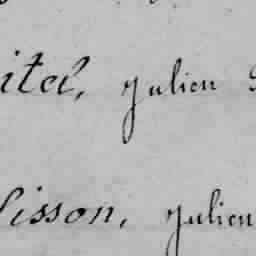 itel, Julien
isson, Julien